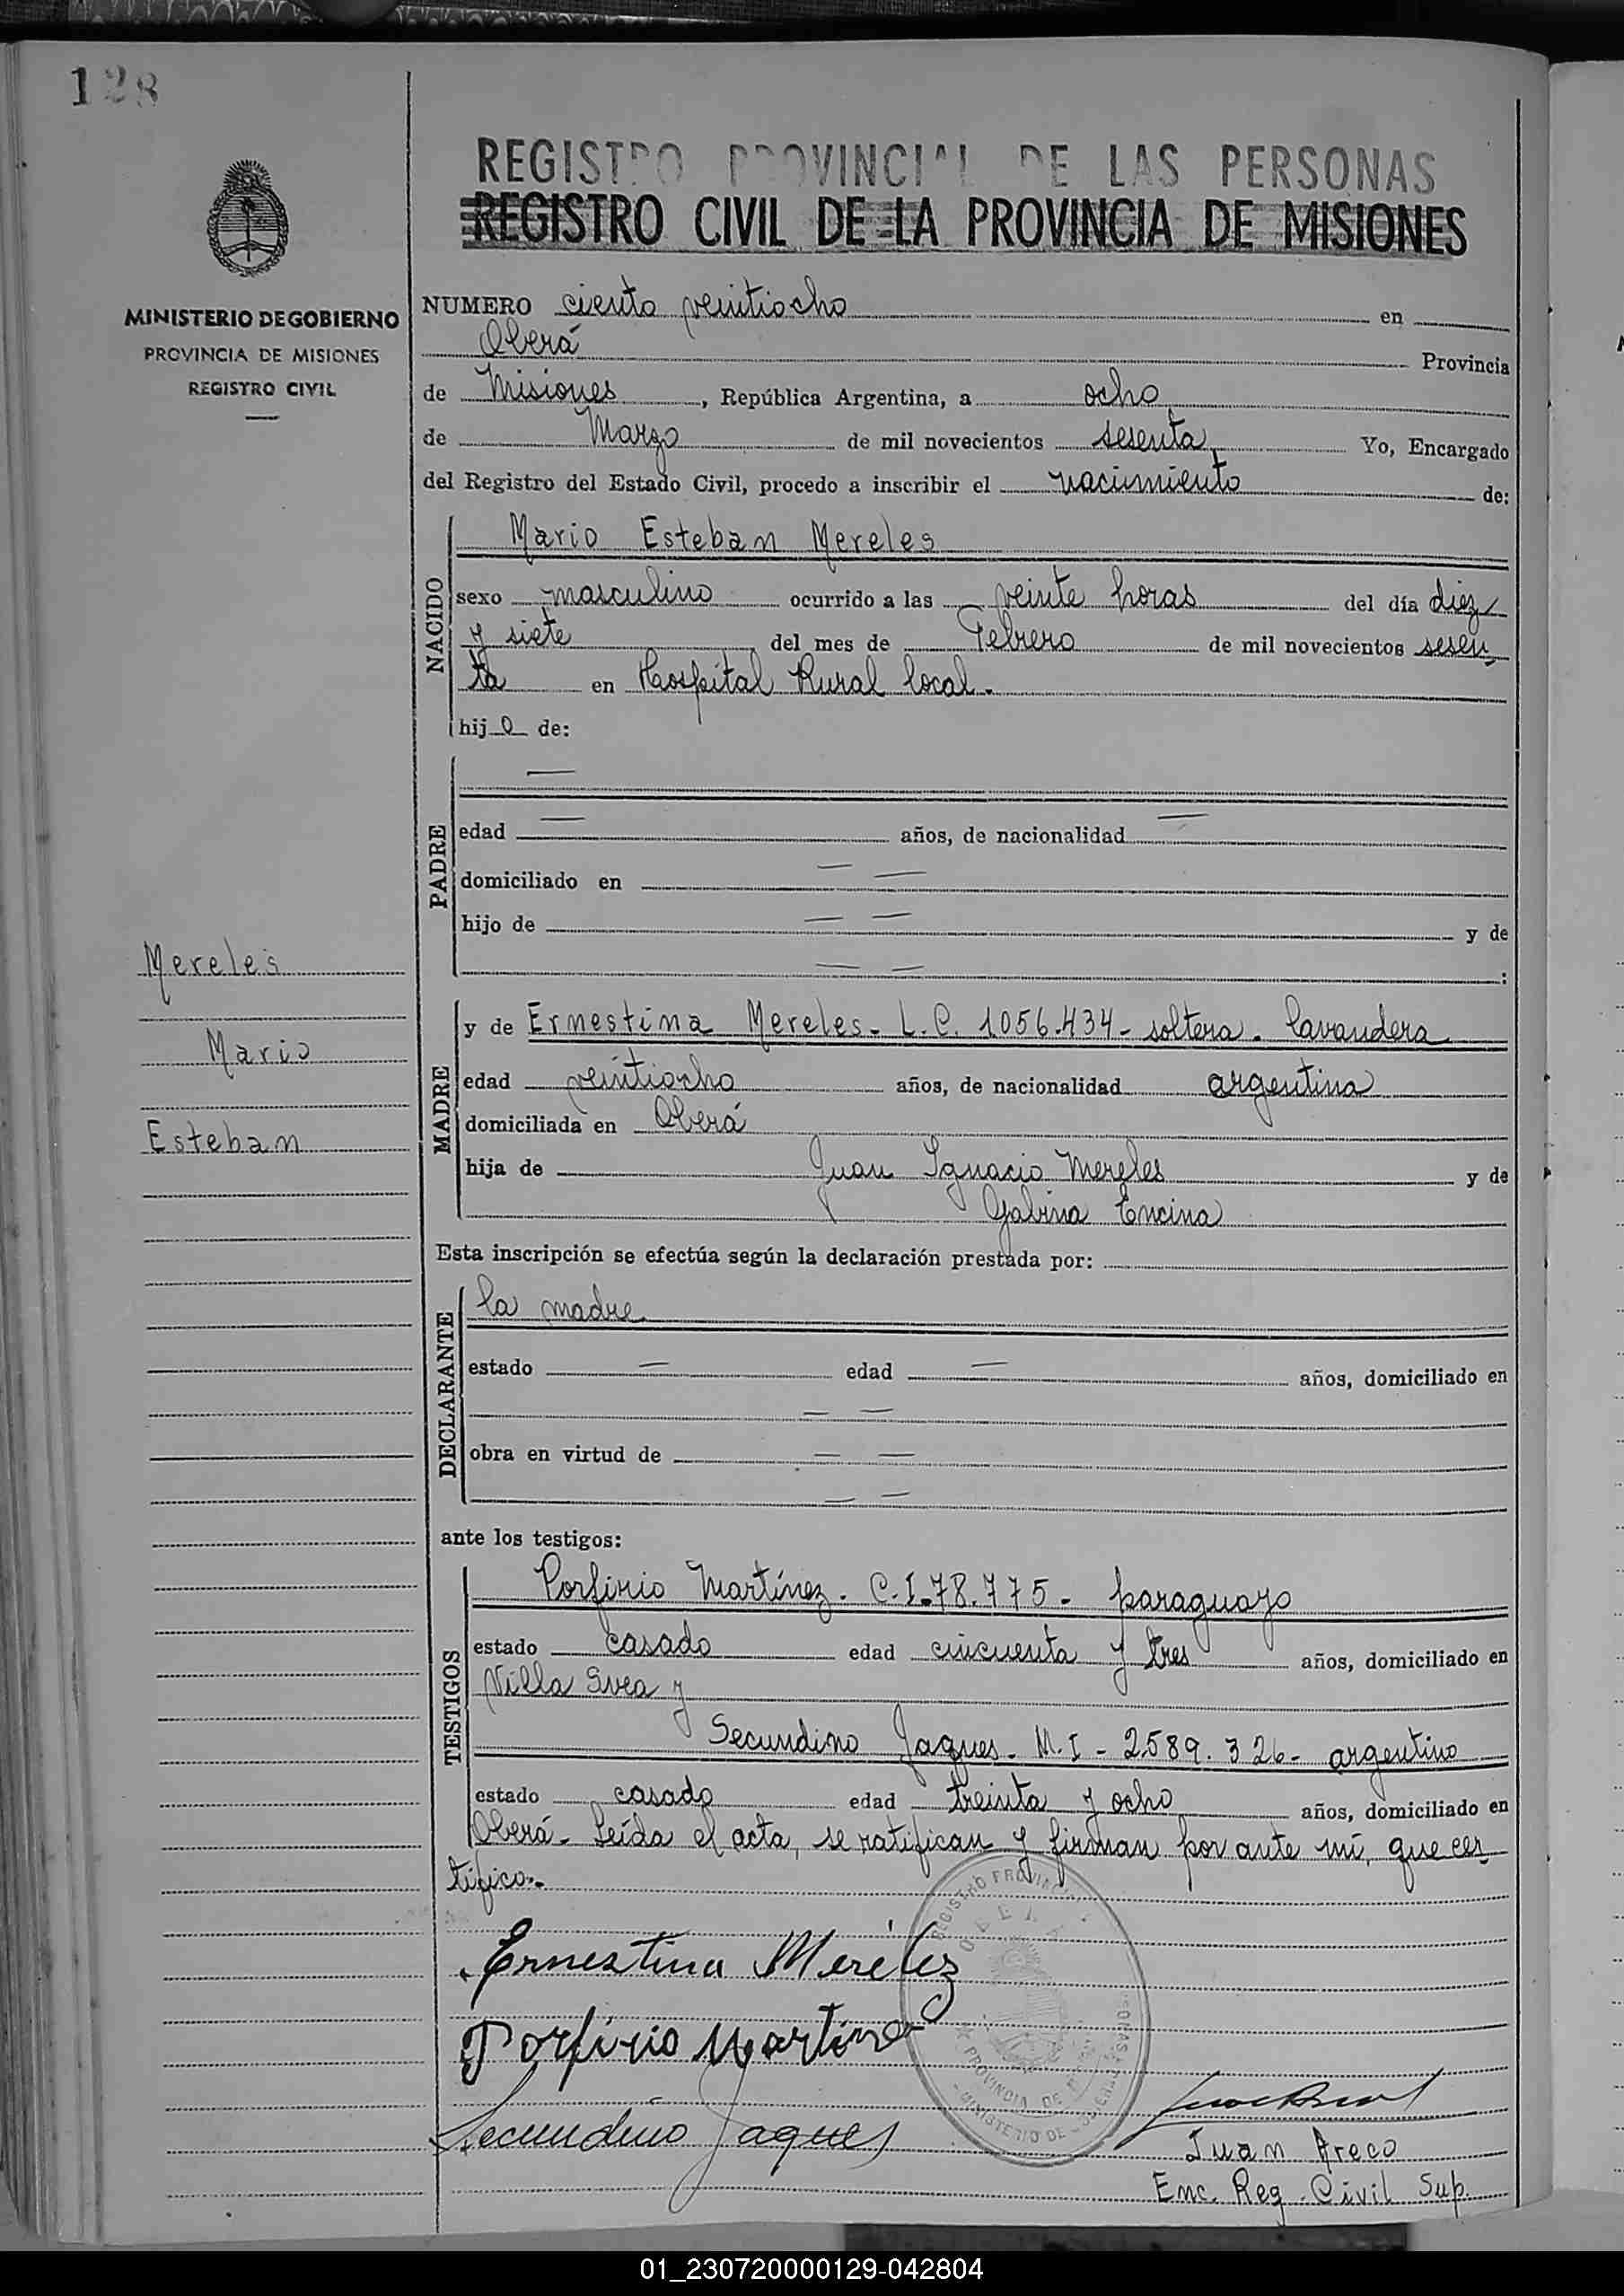 128
REGISTRO PROVINCIAL DE LAS PERSONAS
REGISTRO CIVIL DE LA PROVINCIA DE MISIONES
MINISTERIO DE GOBIERNO
PROVINCIA DE MISIONES
REGISTRO CIVIL
NUMERO ciento veintiocho en
Oberá Provincia
de Misiones, República Argentina, a ocho
de Marzo de mil novecientos sesenta Yo, Encargado
del Registro del Estado Civil, procedo a inscribir el nacimiento de:
NACIDO
Mario Esteban Mereles
sexo masculino ocurrido a las veinte horas del día diez
y siete del mes de Febrero de mil novecientos sesen
ta en Hospital Rural local.
hijo de:
PADRE
—
edad — años, de nacionalidad —
domiciliado en — —
hijo de — — y de
— — :
Mereles
Mario
Esteban
MADRE
y de Ernestina Mereles - L.C. 1056.434 - soltera. lavandera
edad veintiocho años, de nacionalidad argentina
domiciliada en Oberá
hija de Juan Ignacio Mereles y de
Gabina Encina
Esta inscripción se efectúa según la declaración prestada por:
DECLARANTE
la madre
estado — edad — años, domiciliado en
— —
obra en virtud de — —
— —
ante los testigos:
TESTIGOS
Porfirio Martínez - C.I. 78.775 - paraguayo
estado casado edad cincuenta y tres años, domiciliado en
Villa Svea y
Secundino Jaques - M.I - 2.589.326 - argentino
estado casado edad treinta y ocho años, domiciliado en
Oberá - Leída el acta, se ratifican y firman por ante mí, que cer
tifico.-
Ernestina Merélez
Porfirio Martinez
Secundino Jaques
REGISTRO PROVINCIAL
PROVINCIA DE
MINISTERIO DE
Juan Areco
Enc. Reg. Civil Sup.
01_230720000129-042804